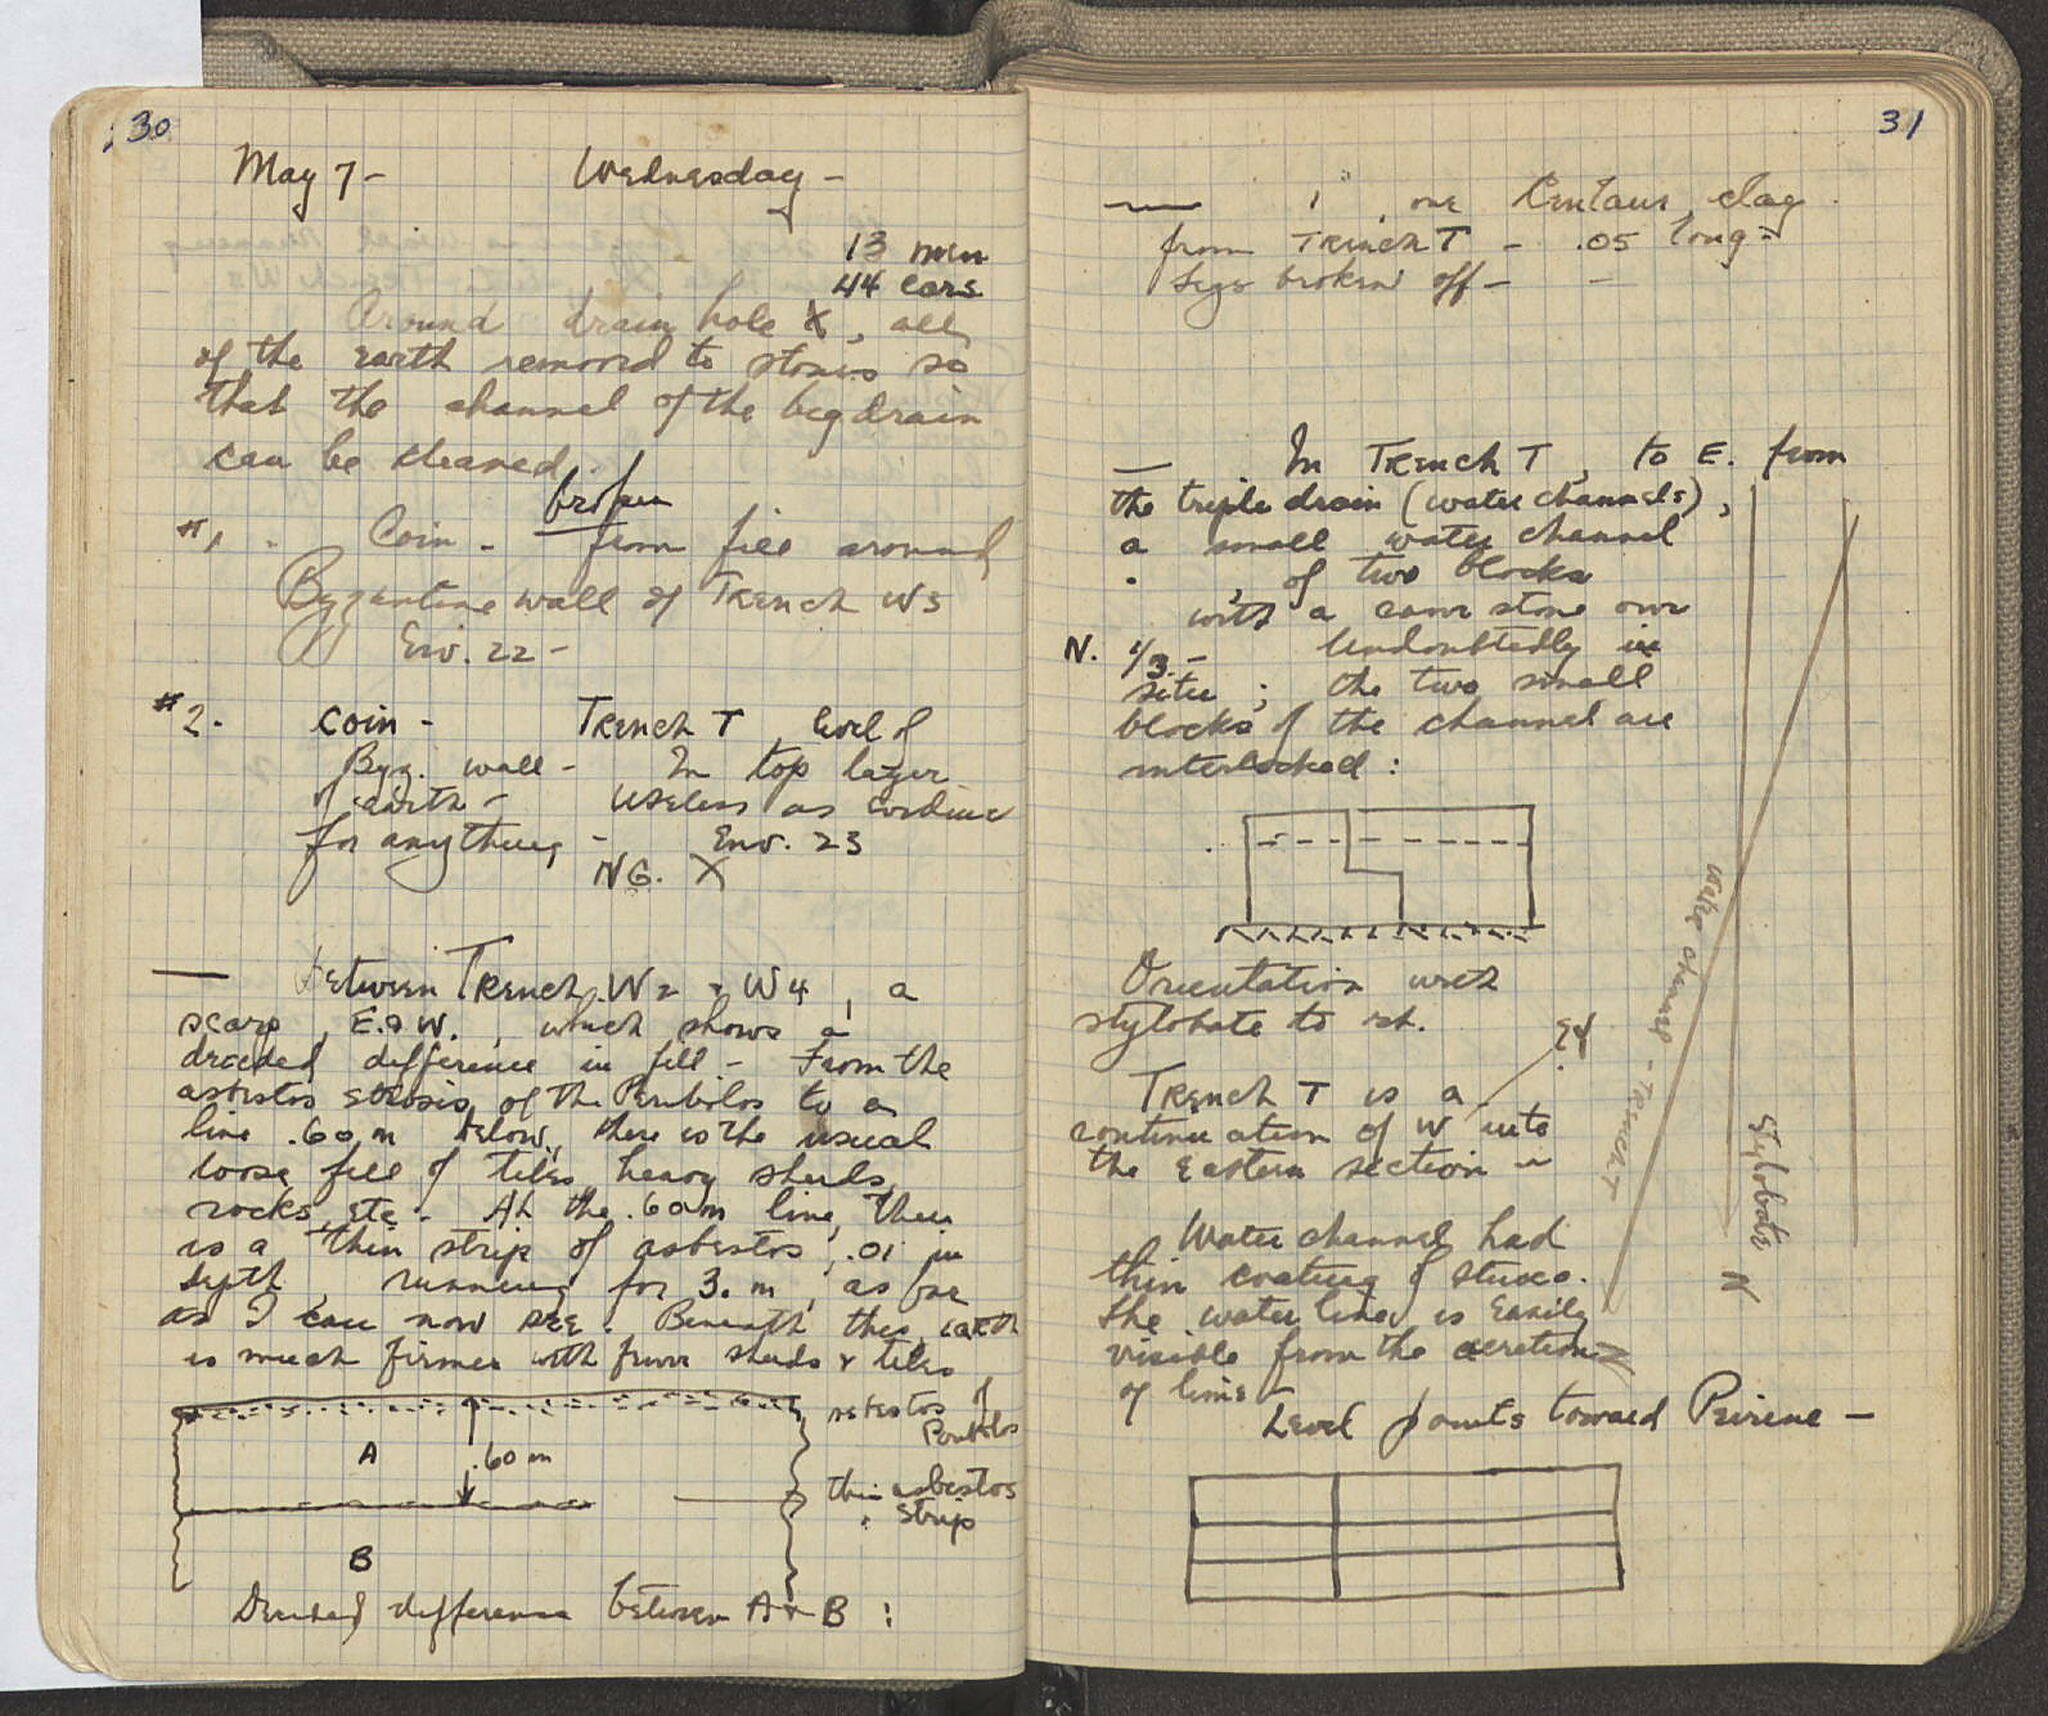 30
May 7 - Wednesday -
13 men
44 cars
Around drain hole X, all
of the earth removed to stones so
that the channel of the big drain
can be cleaned.
broken
#1. Coin - from fill around
Byzantine wall of Trench W3
Env. 22 -
#2. Coin - Trench T, level of
Byz. wall - In top layer
of earth - Useless as evidence
for anything - Env. 23
NG. X
— Between Trench W2 + W4, a
scarp, E. & W., which shows a
decided difference in fill - From the
asbestos strosis of the Peribolos to a
line .60 m below, there is the usual
loose fill of tiles, heavy sherds,
rocks, etc - At the .60 m line, there
is a thin strip of asbestos, .01 in
depth, running for 3. m, as far
as I can now see. Beneath this, earth
is much firmer with fewer sherds & tiles
asbestos of
Peribolos
A .60 m
thin asbestos
strip
B
Decided difference between A + B :
31
— 1, one Centaur, clay
from Trench T - .05 long -
legs broken off -
— In Trench T, to E. from
the triple drain (water channels),
a small water channel
of two blocks
with a cover stone over
N. 1/3 - Undoubtedly in
situ ; the two small
blocks of the channel are
interlocked :
Orientation with
stylobate to rt.
Trench T is a
continuation of W into
the Eastern section -
Water channel had
thin coating of stucco.
The water line is easily
visible from the acretion
of lime -
Level points toward Peirene -
water channel - Trench T
Stylobate
N